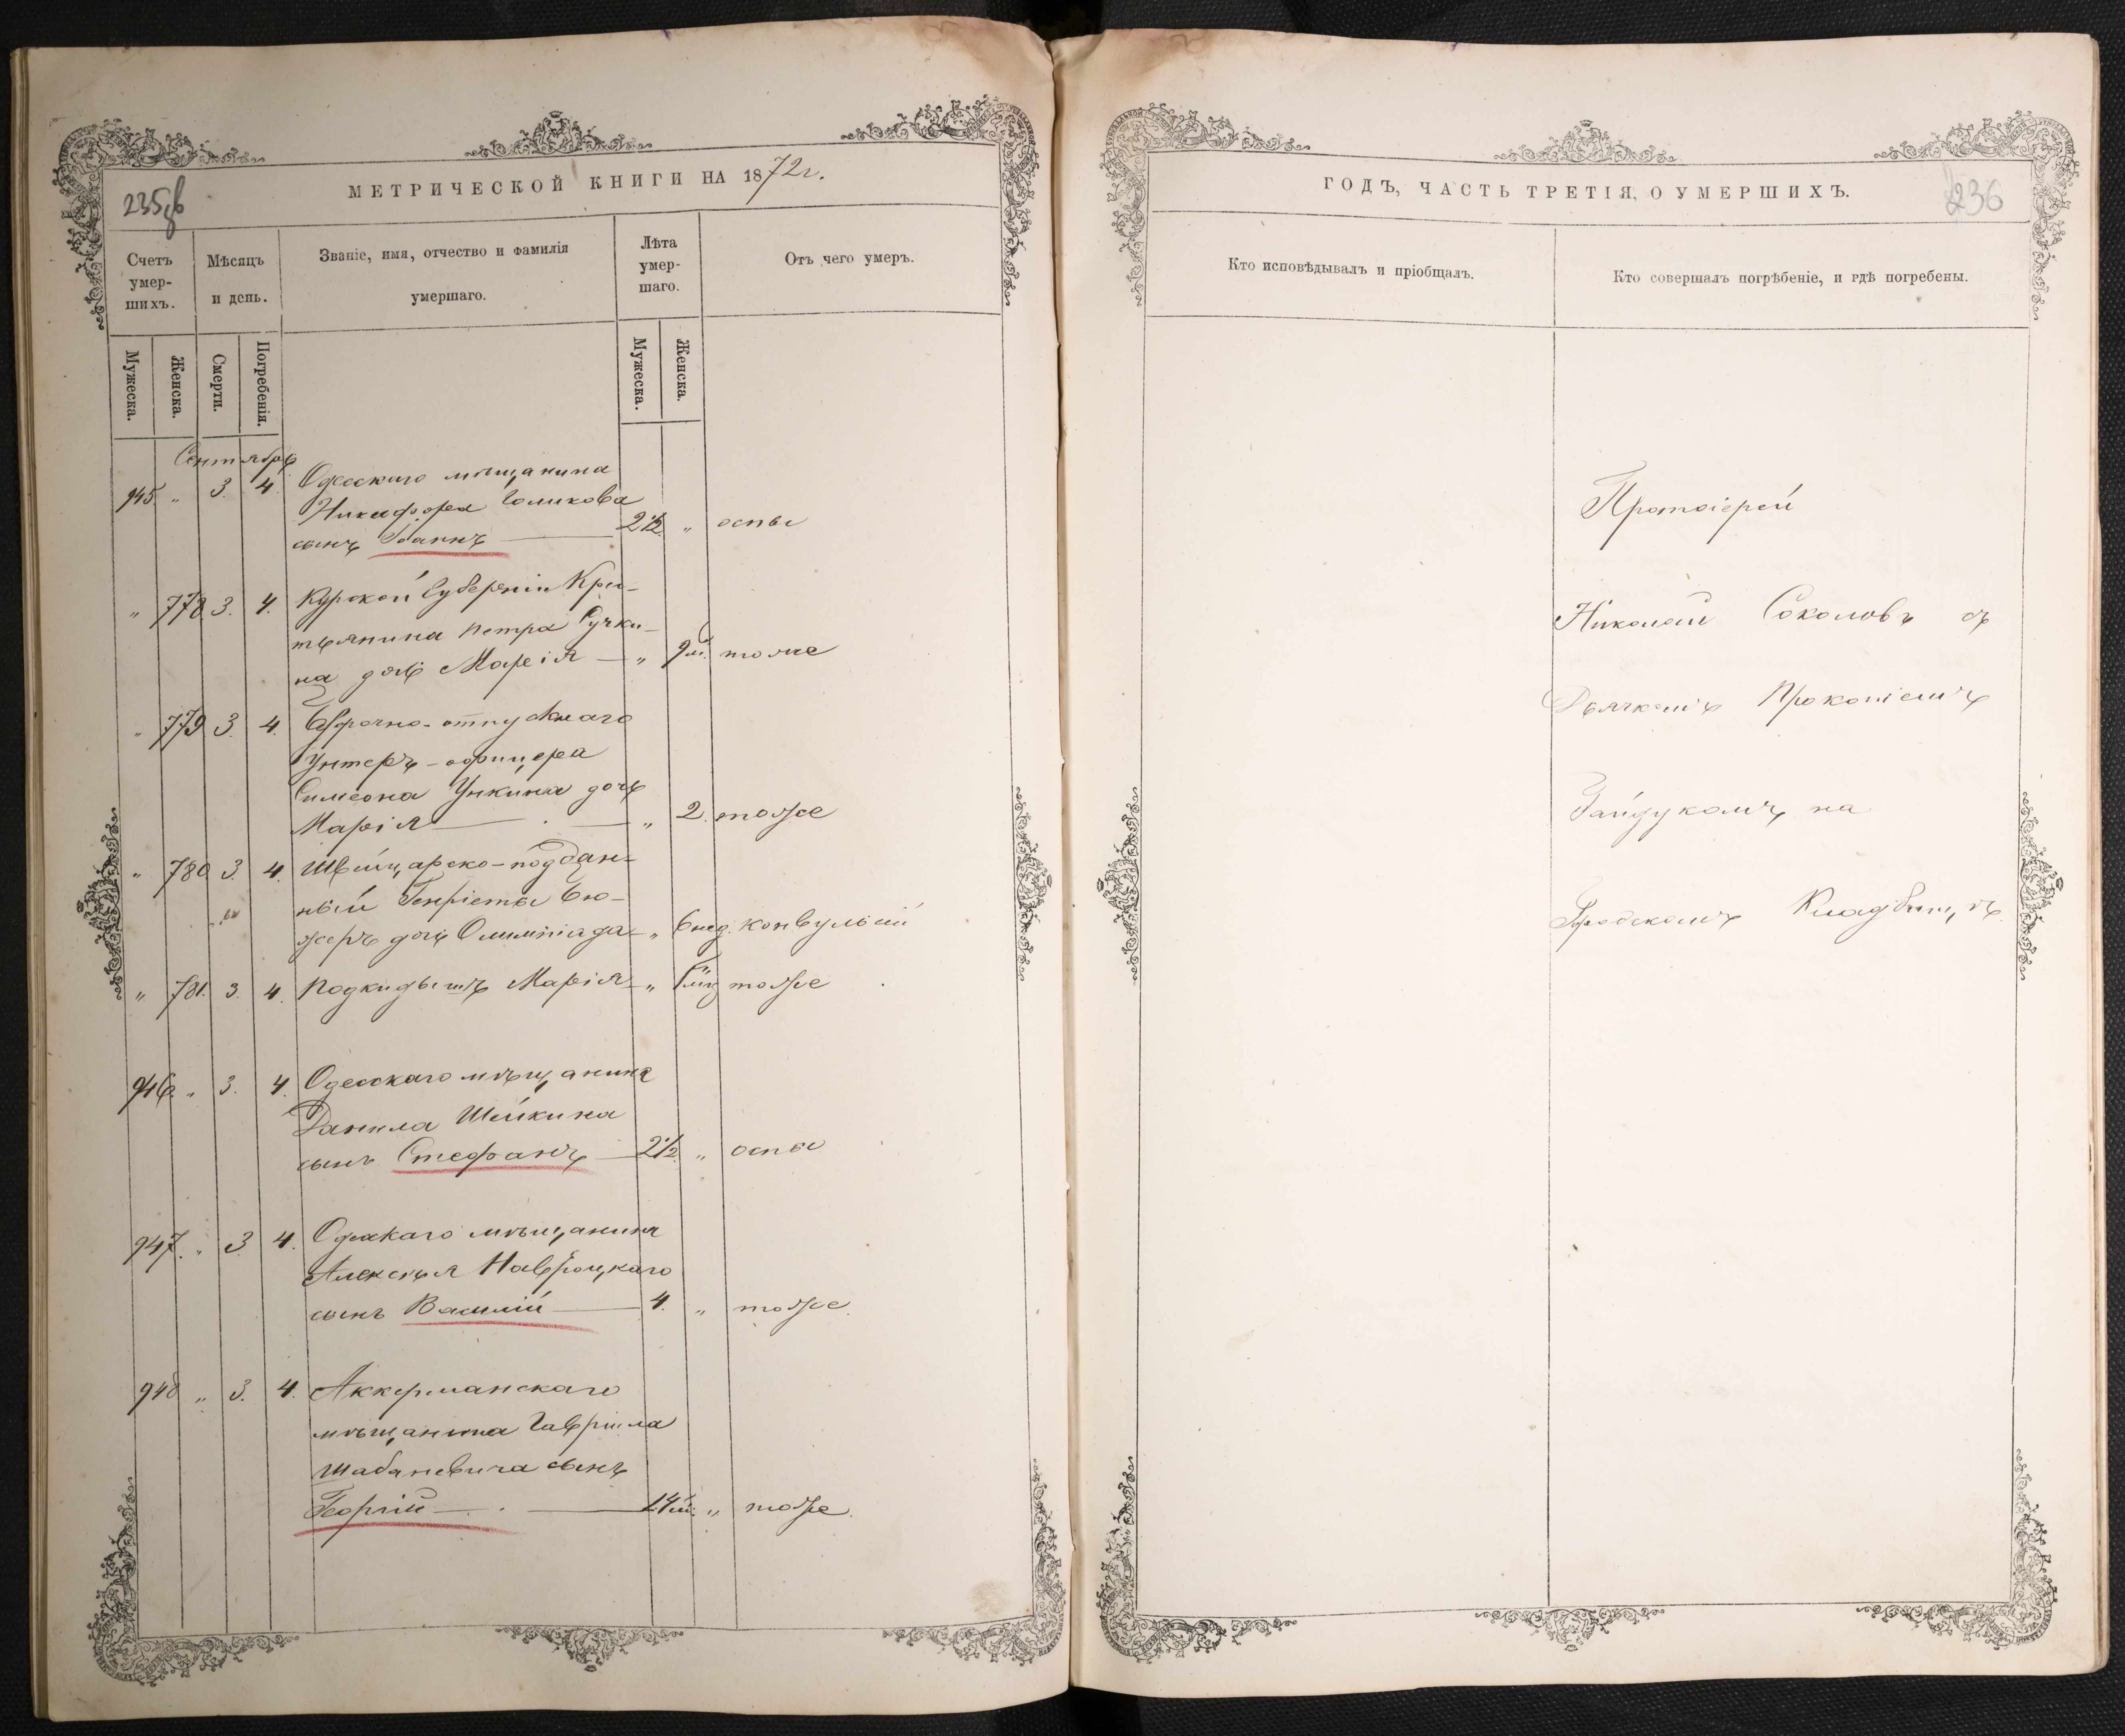 235об
МЕТРИЧЕСКОЙ КНИГИ НА 1872г.
Счетъ умер-шихъ.
Мѣсяцъ и день.
Званіе, имя, отчество и фамилія умершаго.
Лѣта умер-шаго.
Отъ чего умеръ.
Мужеска.
Женска.
Смерти.
Погребенія.
Мужеска.
Женска.
Сентябрь
945. " 3. 4. Одесскаго мѣщанина
Никифора Голикова
сынъ Іоаннъ — 2 1/2 " оспы
" 778 3. 4. Курской Губерніи Кре-
стьянина Петра Сучки-
на дочь Марія — " 9 м. тоже
" 779 3. 4. Безсрочно-отпускнаго
Унтеръ-офицера
Симеона Ункина дочь
Марія — " 2. тоже
" 780 3. 4. Швейцарско-поддан-
ный Генріеты Бю-
жеръ дочь Олимпіада — " 6 нед. конвульсій
" 781. 3. 4. Подкидышъ Марія — " 1 мц тоже
946. " 3. 4. Одесскаго мѣщанина
Данила Шейкина
сынъ Стефанъ — 2 1/2. " оспы
947. " 3 4. Одесскаго мѣщанина
Алексѣя Навроцкаго
сынъ Василій — 4. " тоже.
948 " 3. 4. Аккерманскаго
мѣщанина Гавріила
Шабаневича сынъ
Георгій — 14 м. " тоже.
ГОДЪ, ЧАСТЬ ТРЕТІЯ, О УМЕРШИХЪ.
236
Кто исповѣдывалъ и пріобщалъ.
Кто совершалъ погрѣбеніе, и гдѣ погребены.
Протоіерей
Николай Соколовъ съ
Дьячкомъ Прокопіемъ
Гайдукомъ, на
Городскомъ Кладбищѣ.